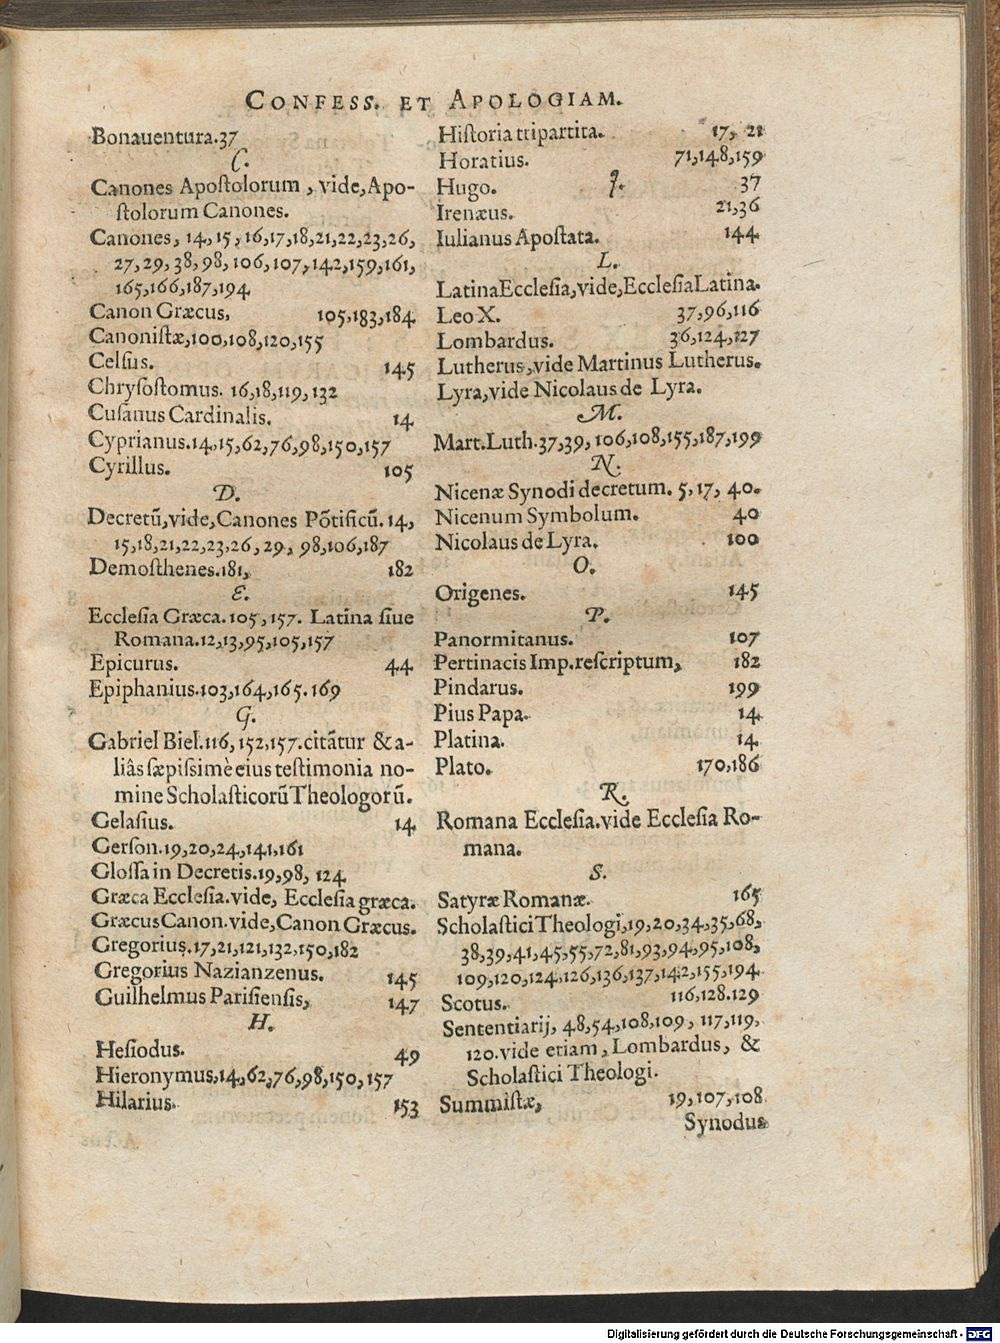 CONFESS. ET APOLOGIAM.
Bonauentura.37
C.
Canones Apoſtolorum, vide, Apo-
ſtolorum Canones.
Canones, 14,15,16,17,18,21,22,23,26,
27,29,38,98,106,107,142,159,161,
165,166,187,194
Canon Græcus, 105,183,184
Canoniſtæ,100,108,120,155
Celſus. 145
Chryſoſtomus. 16,18,119,132
Cuſanus Cardinalis. 14
Cyprianus.14,15,62,76,98,150,157
Cyrillus. 105
D.
Decretū,vide,Canones Pōtificū.14,
15,18,21,22,23,26,29,98,106,187
Demoſthenes.181, 182
E.
Eccleſia Græca.105,157. Latina ſiue
Romana.12,13,95,105,157
Epicurus. 44
Epiphanius.103,164,165.169
G.
Gabriel Biel.116,152,157.citātur & a-
liâs ſæpiſsimè eius teſtimonia no-
mine Scholaſticorū Theologorū.
Gelaſius. 14
Gerſon.19,20,24,141,161
Gloſſa in Decretis.19,98, 124
Græca Eccleſia.vide, Eccleſia græca.
Græcus Canon.vide,Canon Græcus.
Gregorius.17,21,121,132,150,182
Gregorius Nazianzenus. 145
Guilhelmus Pariſienſis, 147
H.
Heſiodus. 49
Hieronymus,14,62,76,98,150,157
Hilarius. 153
Hiſtoria tripartita. 17, 21
Horatius. 71,148,159
Hugo. 37
I.
Irenæus. 21,36
Iulianus Apoſtata. 144
L.
Latina Eccleſia,vide,Eccleſia Latina.
Leo X. 37,96,116
Lombardus. 36,124,127
Lutherus,vide Martinus Lutherus.
Lyra,vide Nicolaus de Lyra.
M.
Mart.Luth.37,39,106,108,155,187,199
N.
Nicenæ Synodi decretum. 5,17, 40.
Nicenum Symbolum. 40
Nicolaus de Lyra. 100
O.
Origenes. 145
P.
Panormitanus. 107
Pertinacis Imp.reſcriptum, 182
Pindarus. 199
Pius Papa. 14
Platina. 14
Plato. 170,186
R.
Romana Eccleſia.vide Eccleſia Ro-
mana.
S.
Satyræ Romanæ. 165
Scholaſtici Theologi,19,20,34,35,68,
38,39,41,45,55,72,81,93,94,95,108,
109,120,124,126,136,137,142,155,194
Scotus. 116,128.129
Sententiarij, 48,54,108,109, 117,119,
120.vide etiam, Lombardus, &
Scholaſtici Theologi.
Summiſtæ, 19,107,108
Synodus
Digitalisierung gefördert durch die Deutsche Forschungsgemeinschaft - DFG